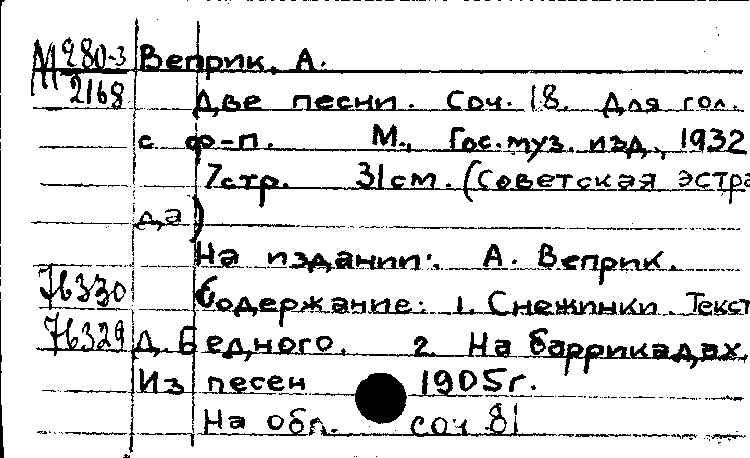 М 280-3 Веприк, А.
2168 Две песни. Соч. 18. Для гол.
с ф-п. М., Гос. муз. изд., 1932
7стр. 31см. (Советская эстра
да)
На издании: А. Веприк.
76330 Содержание: 1. Снежинки. Текст
76329 Д. Бедного. 2. На баррикадах.
Из песен 1905г.
На обл. соч 81